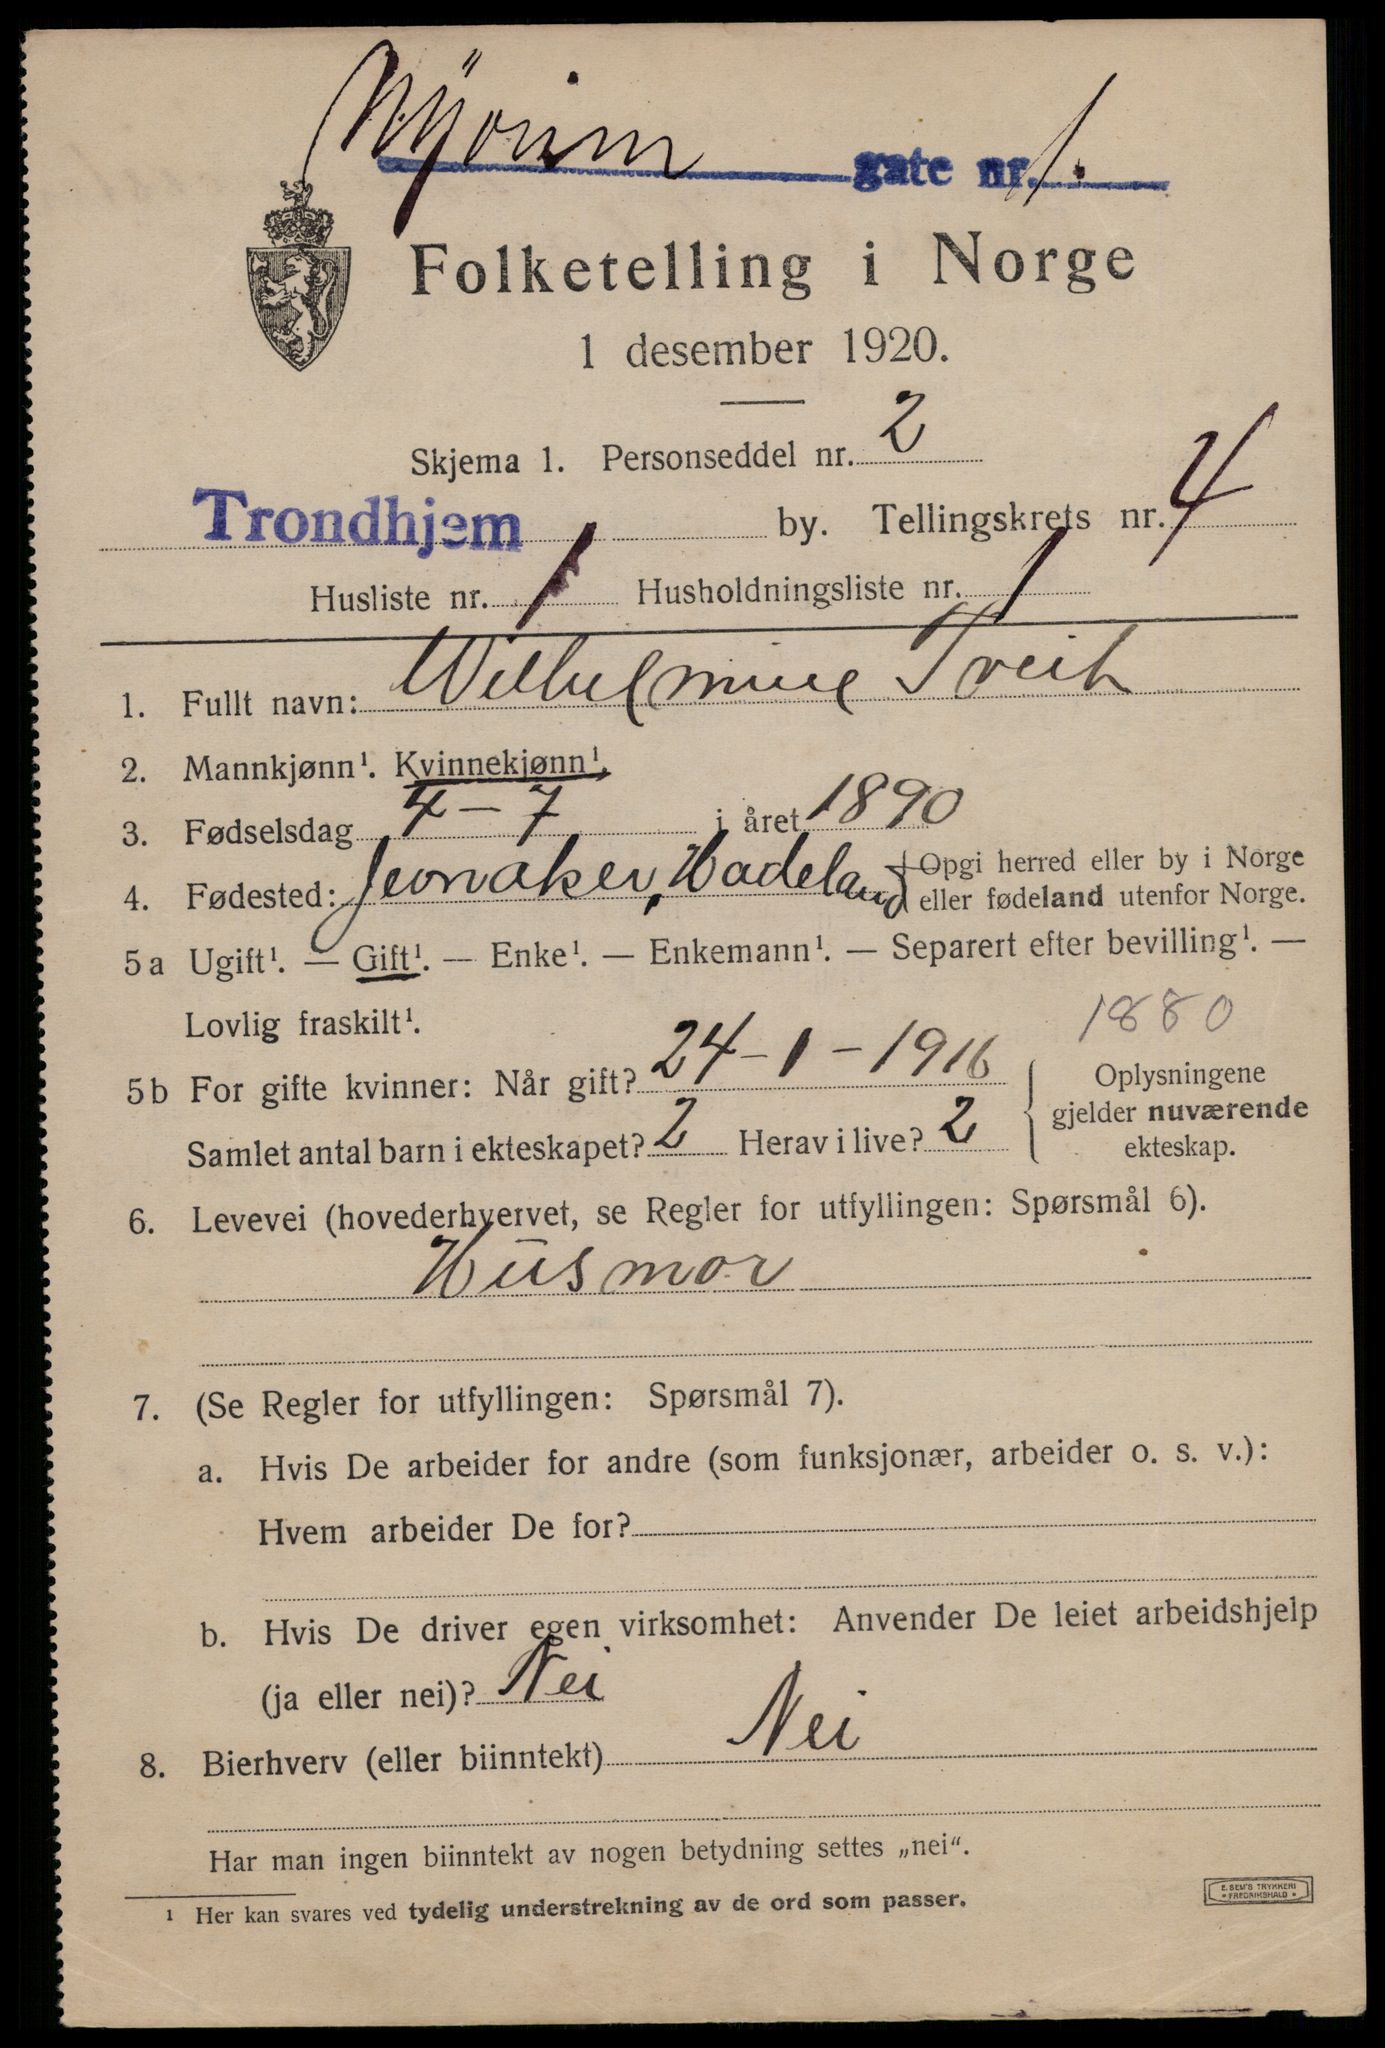 gate nr. 1.
Folketelling i Norge
1 desember 1920.
Skjema 1. Personseddel nr. 2
Trondhjem by. Tellingskrets nr. 4
Husliste nr. 1 Husholdningsliste nr. 1
1. Fullt navn: Wilhelmine Treit
2. Mannkjønn¹. Kvinnekjønn¹.
3. Fødselsdag 4 – 7 i året 1890
4. Fødested: Jevnaker, Hadeland { Opgi herred eller by i Norge
eller fødeland utenfor Norge.
5 a Ugift¹. — Gift¹. — Enke¹. — Enkemann¹. — Separert efter bevilling¹. —
Lovlig fraskilt¹.
1880
5 b For gifte kvinner: Når gift? 24 – 1 – 1916
Samlet antal barn i ekteskapet? 2 Herav i live? 2
Oplysningene
gjelder nuværende
ekteskap.
6. Levevei (hovederhvervet, se Regler for utfyllingen: Spørsmål 6).
Husmor
7. (Se Regler for utfyllingen: Spørsmål 7).
a. Hvis De arbeider for andre (som funksjonær, arbeider o. s. v.):
Hvem arbeider De for?
b. Hvis De driver egen virksomhet: Anvender De leiet arbeidshjelp
(ja eller nei)? Nei
8. Bierhverv (eller biinntekt) Nei
Har man ingen biinntekt av nogen betydning settes „nei“.
¹ Her kan svares ved tydelig understrekning av de ord som passer.
E. SEM'S TRYKKERI
• FREDRIKSHALD •